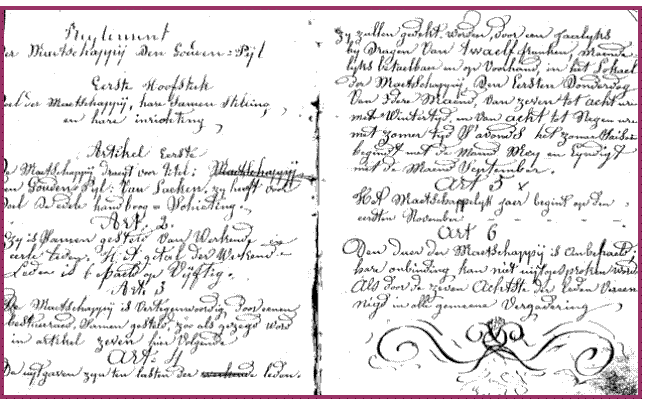 Reglement
der Maetschappij Den Gouden=Pyl
Eerste Hoofstuk
Doel der Maetschappij, hare Samen stelling,
en hare inrichting
Artikel Eerste
De Maetschappij draegt voor titel: Maetschappij
den Gouden=Pyl: Van Sucken. zy heeft voor
Doel De edele handboog = Schieting.
Art. 2.
Zy is Samen gesteld van Werkende en
eerte leden. Het getal der Werkende
Leden is bepaeld op Vyftig.
Art. 3
De Maetschappij is vertegenwoordig door eenen
bestuurraed, Samen gesteld, zoo als gezegd word
in artikel zeven hier volgende
Art. 4
De uytgaven zyn ten lasten der werkende leden.
zy zullen gedekt worden, door een jaerlyks
by Dragen Van twaelf franken, maende
lyks betaelbaer en op Voorhand, in het Lokael
der Maetschappij Den Eersten Donderdag
Van Idere Maend, Van zeven tot acht ure
met Wintertyd, en van acht tot Negen ure
met zomer tyd S'avonds het zomer Saisoen
begind met de Maend Mey en Eyndigt
met de Maend September.
Art 5
Het Maetschappelyk jaer begint op den
eersten November
Art 6
Den duer der Maetschappij is onbepaeld;
hare onbinding kan niet uytgesproken worden
Als door de zeven Achtste der leden Vereen
nigd in alle gemeene Vergadering